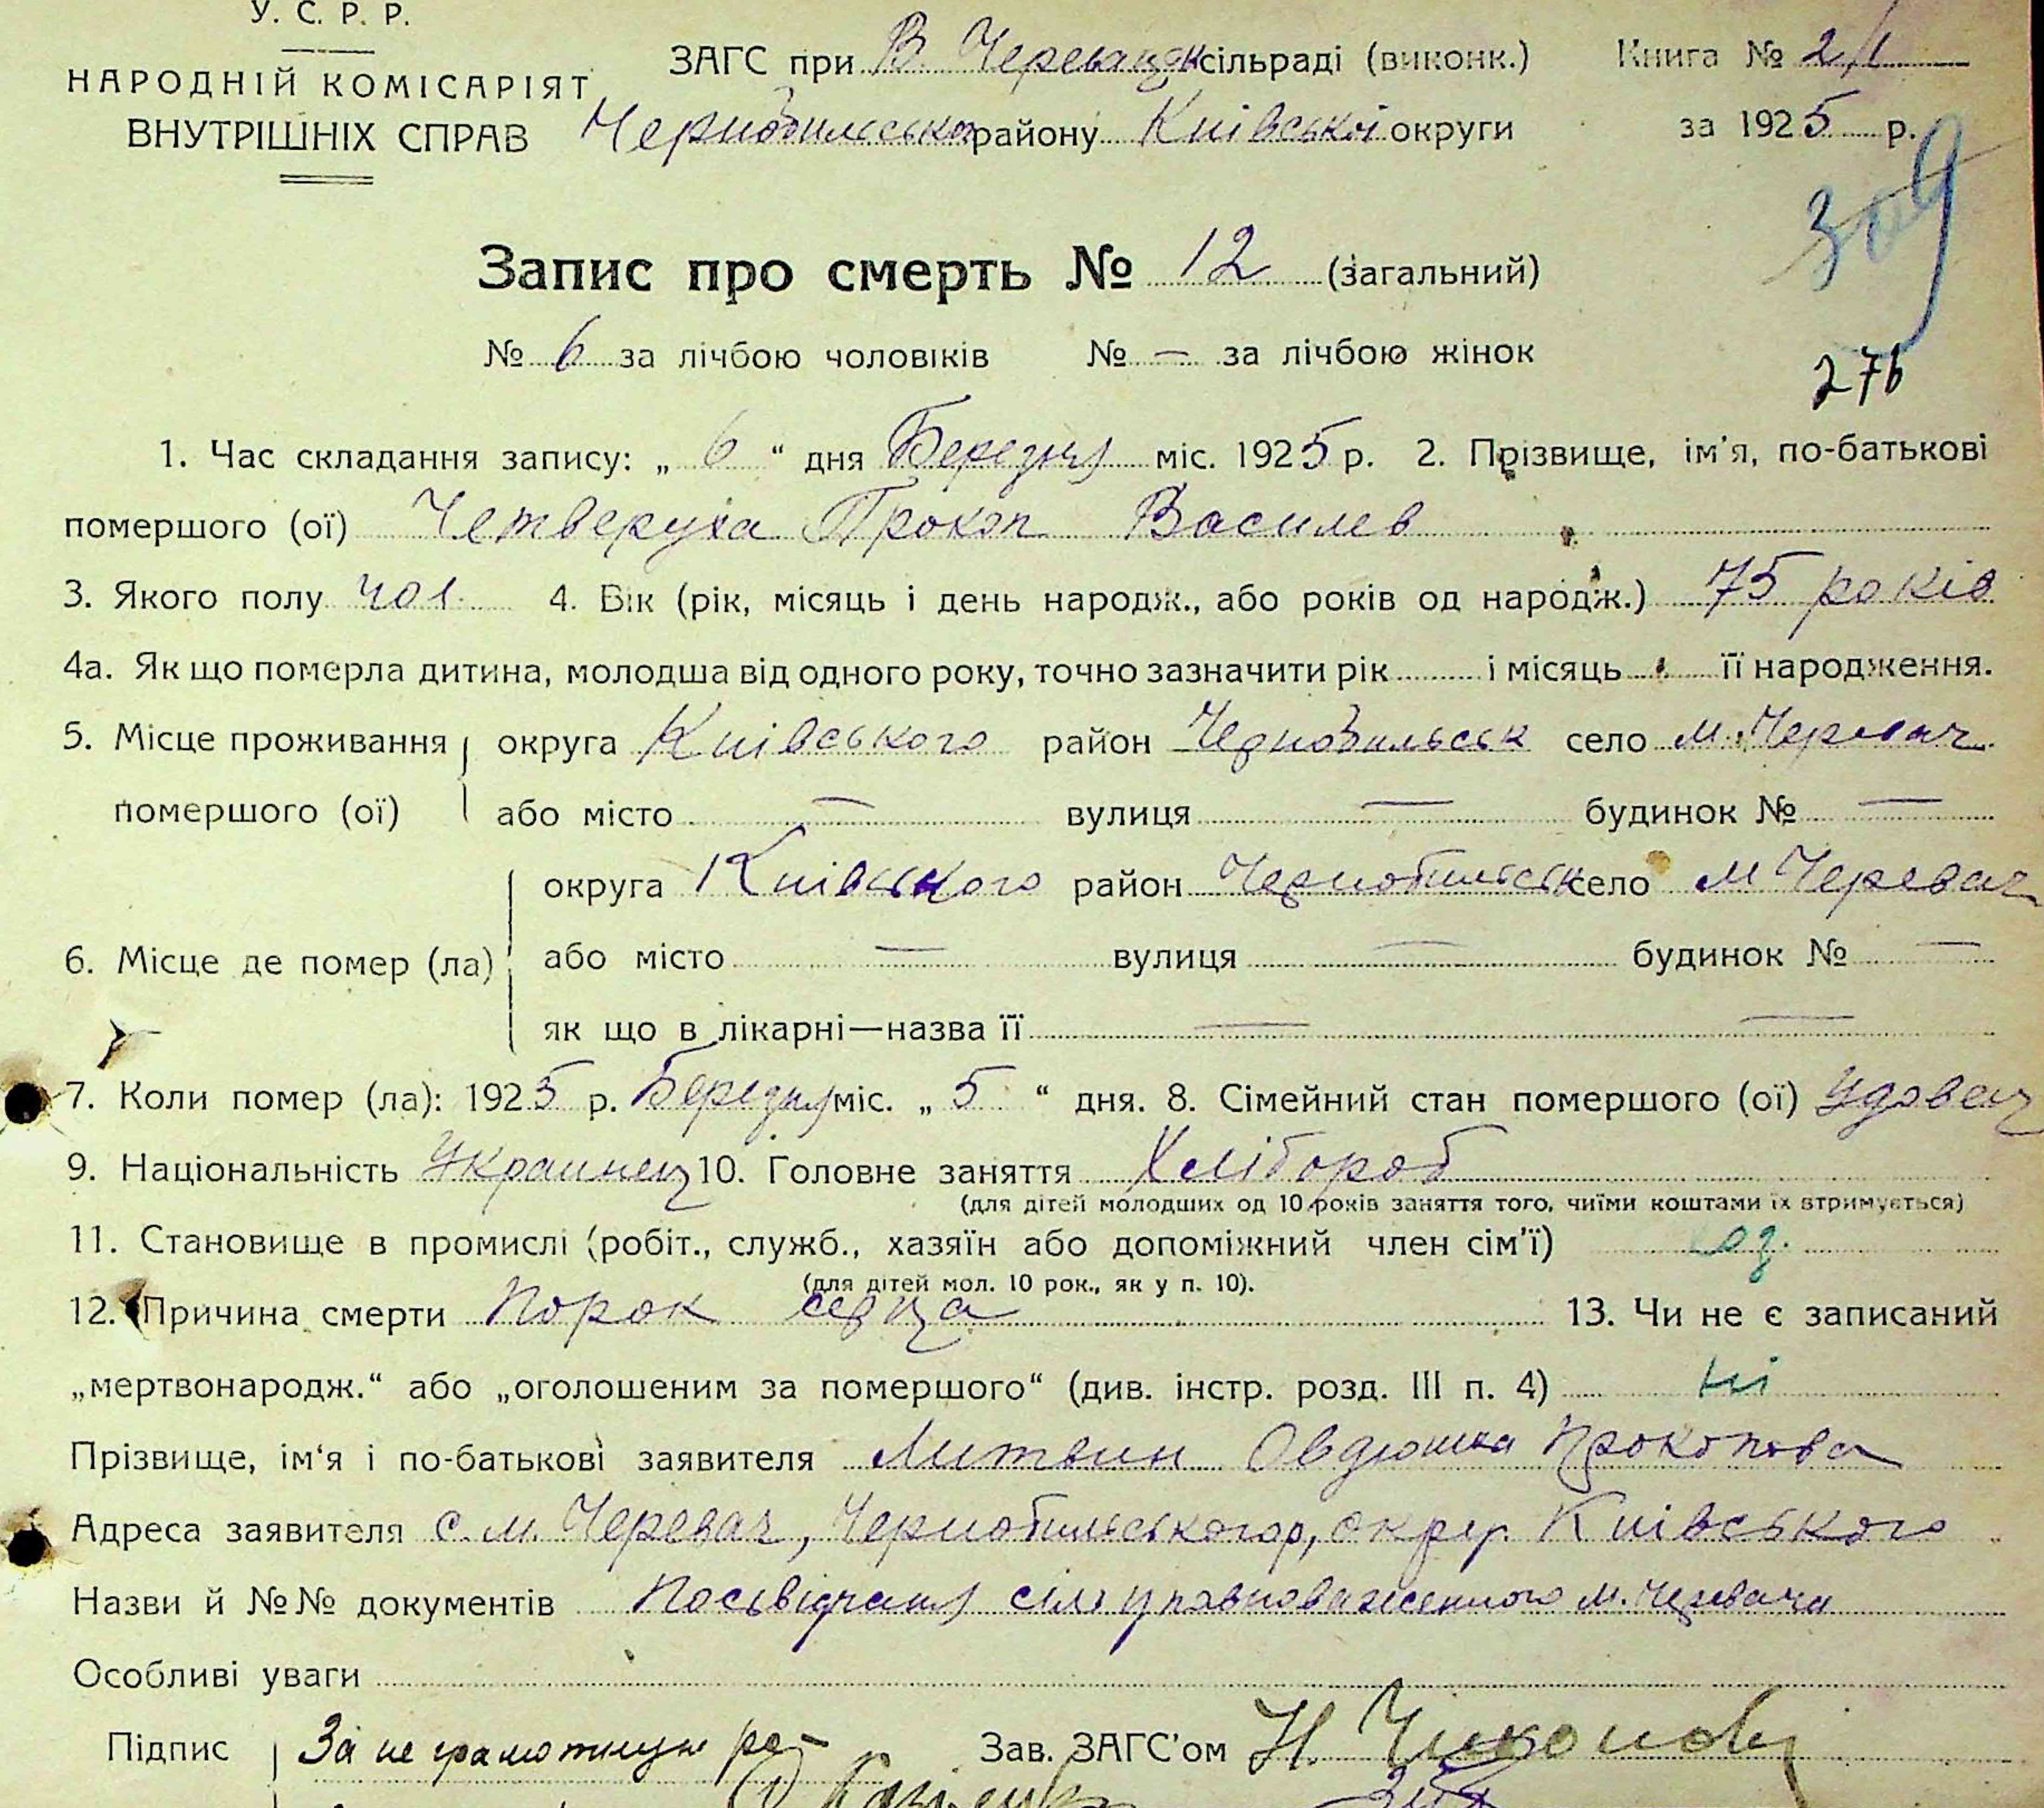 У. С. Р. Р.
НАРОДНІЙ КОМІСАРІЯТ
ВНУТРІШНІХ СПРАВ
ЗАГС при В. Черевацьк сільраді (виконк.) Книга № 2/1
Чернобильського району Київської округи за 1925 р.
309
Запис про смерть № 12 (загальний)
№ 6 за лічбою чоловіків № — за лічбою жінок
276
1. Час складання запису: „ 6 “ дня Березня міс. 1925 р. 2. Прізвище, ім'я, по-батькові
помершого (ої) Четверуха Прокоп Василев
3. Якого полу чол. 4. Вік (рік, місяць і день народж., або років од народж.) 75 років
4а. Як що померла дитина, молодша від одного року, точно зазначити рік і місяць її народження.
5. Місце проживання округа Київського район Чернобильськ село м. Черевач
помершого (ої) або місто — вулиця — будинок № —
округа Київського район Чернобильськ село м Черевач
6. Місце де помер (ла) або місто — вулиця — будинок № —
як що в лікарні—назва її — —
7. Коли помер (ла): 1925 р. Березня міс. „ 5 “ дня. 8. Сімейний стан помершого (ої) Удовец
9. Національність Украинец 10. Головне заняття Хлібороб
(для дітей молодших од 10 років заняття того, чиїми коштами їх втримується)
11. Становище в промислі (робіт., служб., хазяїн або допоміжний член сім'ї)
(для дітей мол. 10 рок., як у п. 10).
12. Причина смерти Порок серца 13. Чи не є записаний
„мертвонародж.“ або „оголошеним за помершого“ (див. інстр. розд. III п. 4) ні
Прізвище, ім'я і по-батькові заявителя Литвин Овдюшка Прокопова
Адреса заявителя с. м. Черевач, Чернобильського р, окру. Київського
Назви й №№ документів Посьвідчання сіль уповноваженного м. Черевача
Особливі уваги
Підпис За не грамотную ро- Зав. ЗАГС'ом Н.